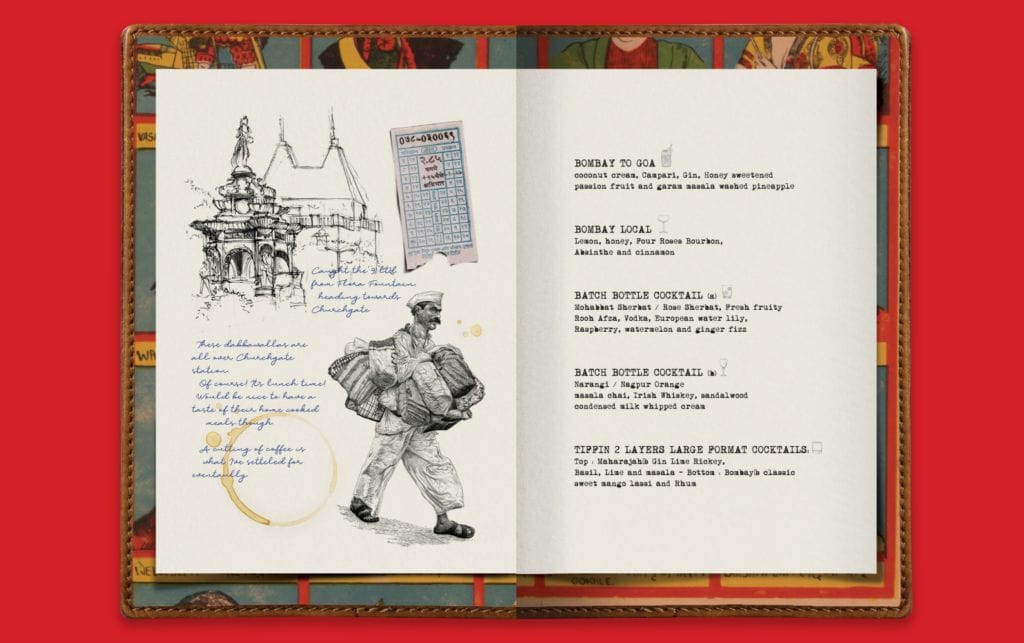 Caught the
from Flora Fountain,
heading towards
Churchgate
These dabbawallas are
all over Churchgate
station.
Of course! It's lunch time!
Would be nice to have a
taste of their home cooked
meals though.
A cutting of coffee is
what I've settled for
eventually.
२.८५
रुपये
BOMBAY TO GOA
coconut cream, Campari, Gin, Honey sweetened
passion fruit and garam masala washed pineapple
BOMBAY LOCAL
Lemon, honey, Four Roses Bourbon,
Absinthe and cinnamon
BATCH BOTTLE COCKTAIL (a)
Mohabbat Sherbat / Rose Sherbat, Fresh fruity
Rooh Afza, Vodka, European water lily,
Raspberry, watermelon and ginger fizz
BATCH BOTTLE COCKTAIL (b)
Narangi / Nagpur Orange
masala chai, Irish Whiskey, sandalwood
condensed milk whipped cream
TIFFIN 2 LAYERS LARGE FORMAT COCKTAILS.
Top : Gin Lime Rickey,
Basil, Lime and masala - Bottom : classic
sweet mango lassi and Rhum
GOKHLE.